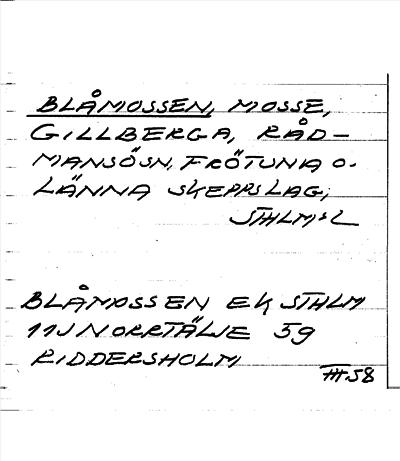 BLÅMOSSEN, MOSSE,
GILLBERGA, RÅD-
MANSÖSN, FRÖTUNA O.
LÄNNA SKEPPSLAG,
STHLMSL
BLÅMOSSEN EK STHLM
11J NORRTÄLJE 59
RIDDERSHOLM
III.58